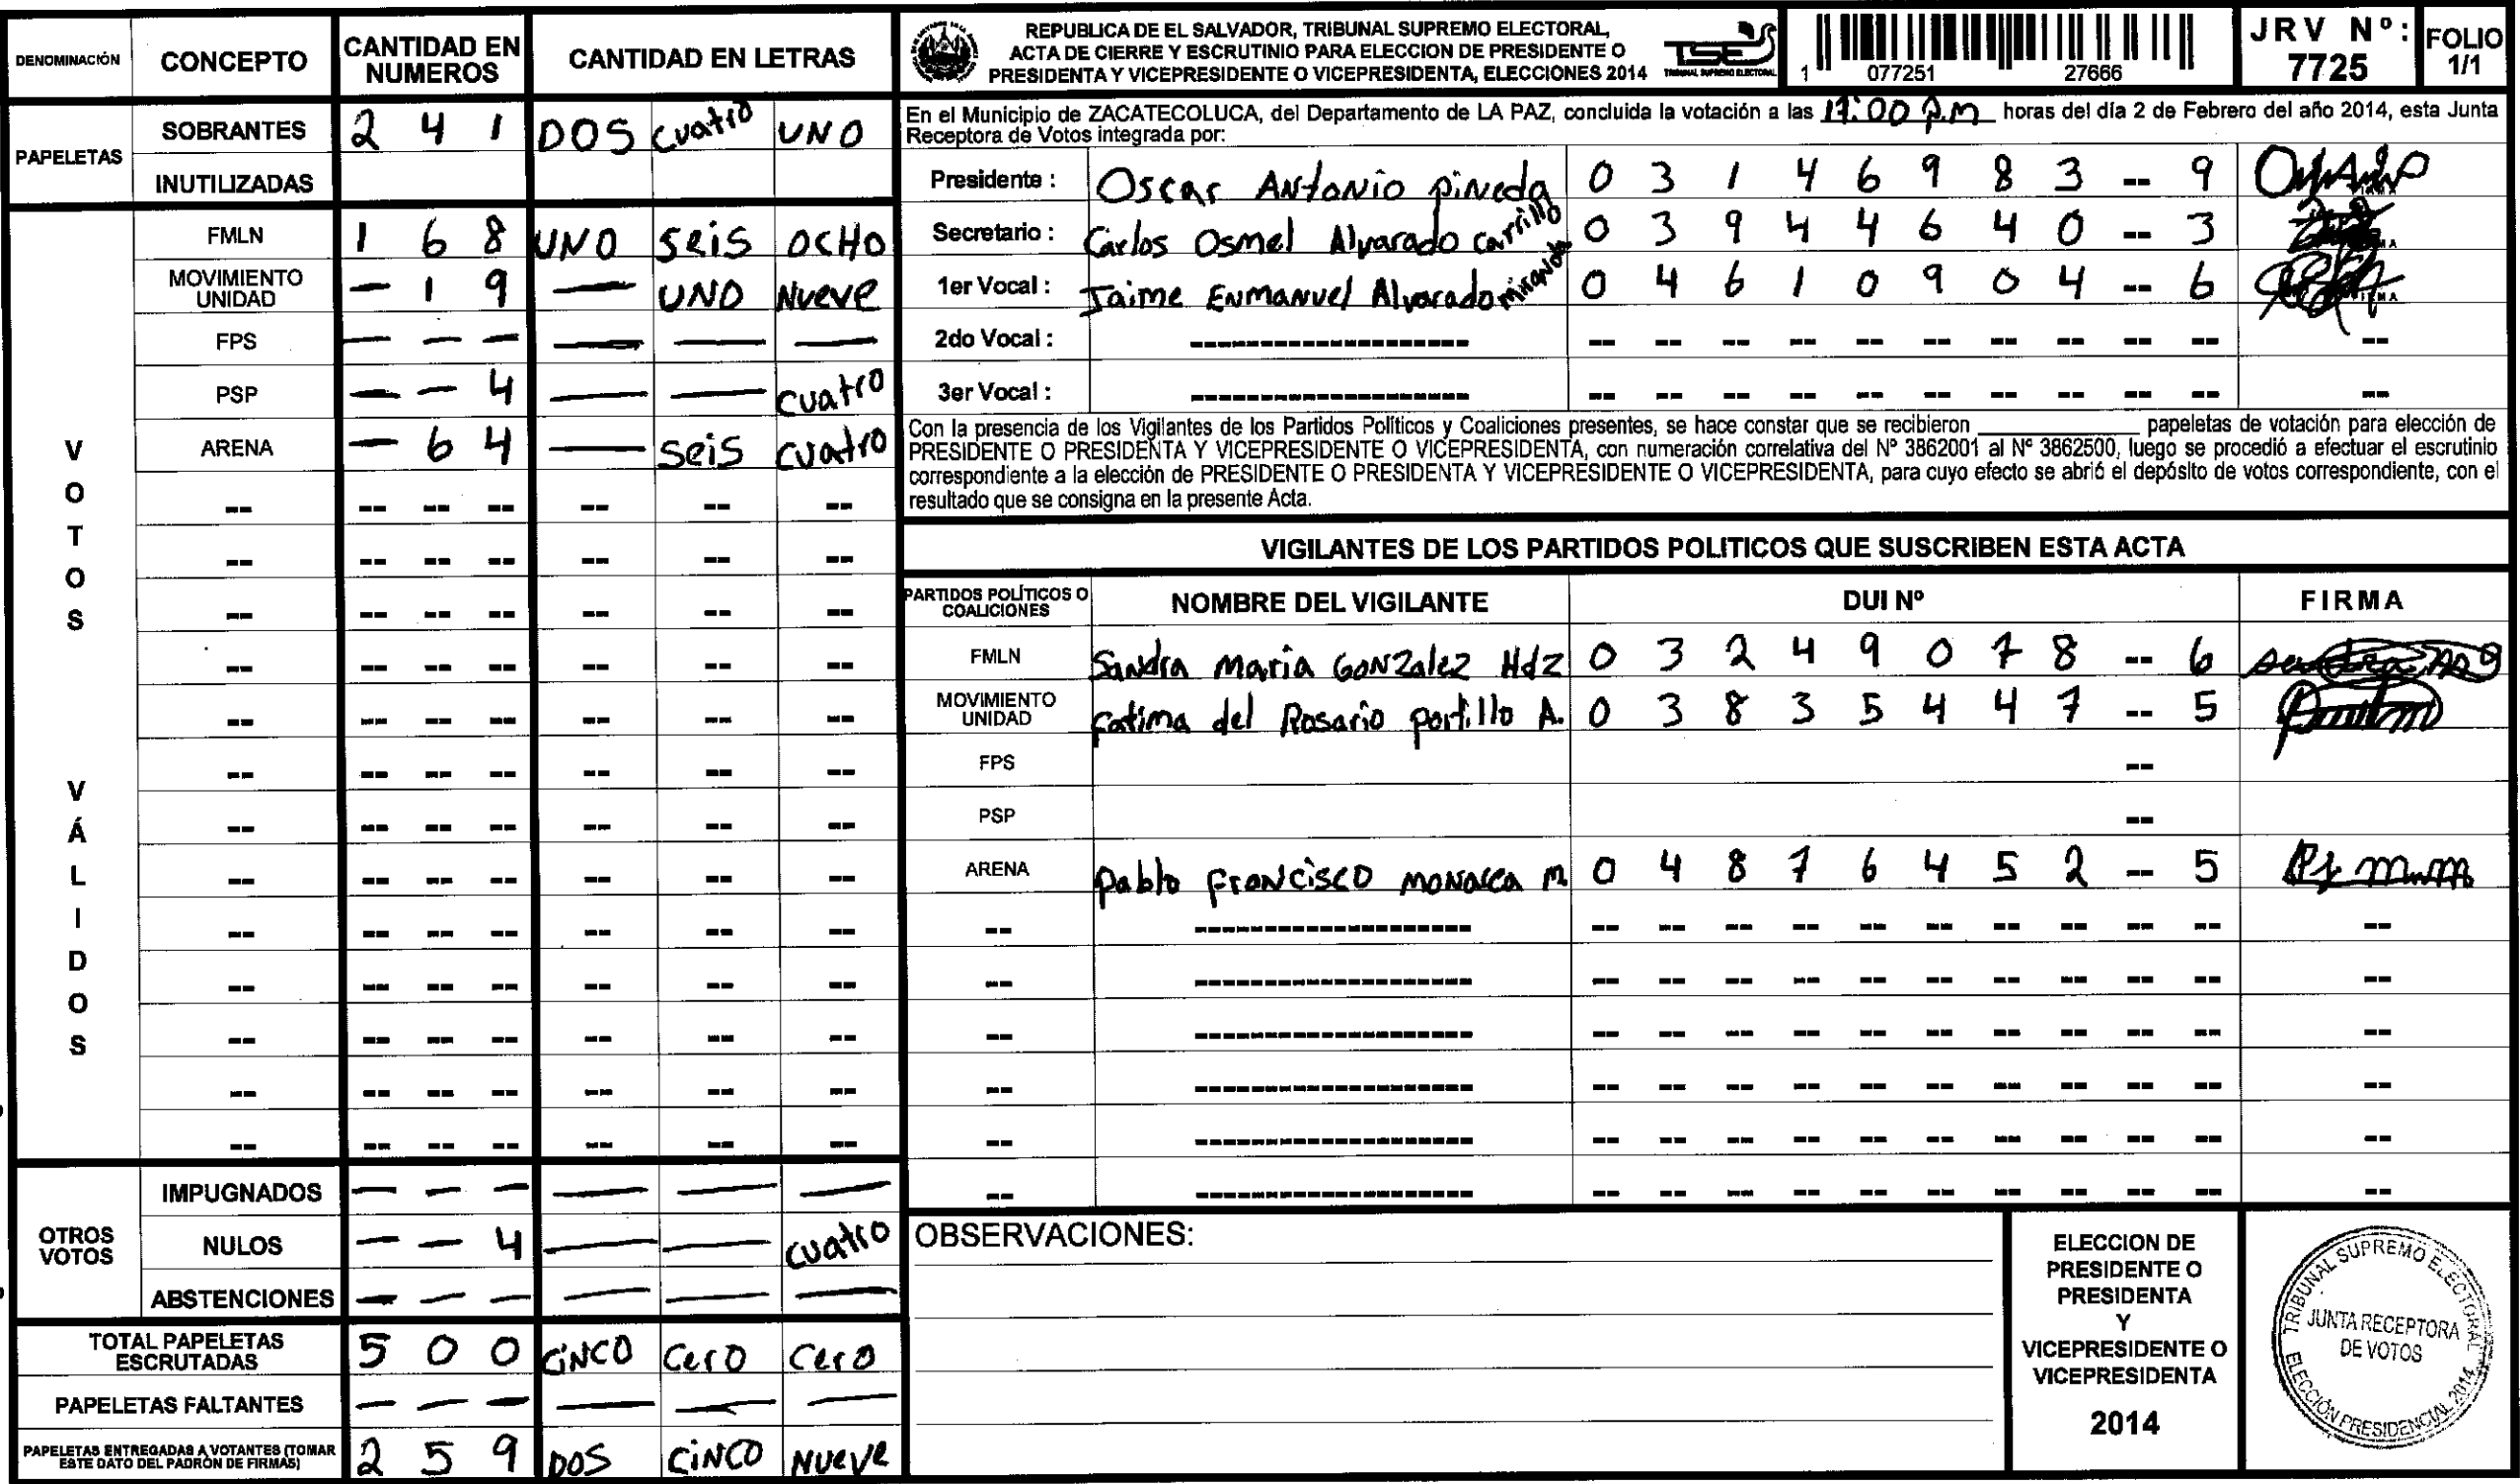 DENOMINACIÓN CONCEPTO CANTIDAD EN NUMEROS CANTIDAD EN LETRAS
PAPELETAS
SOBRANTES 2 4 1 DOS cuatro UNO
INUTILIZADAS
VOTOS VÁLIDOS
FMLN 1 6 8 UNO seis OCHO
MOVIMIENTO UNIDAD — 1 9 — UNO Nueve
FPS — — — — — —
PSP — — 4 — — cuatro
ARENA — 6 4 — seis cuatro
-- -- -- -- -- -- --
-- -- -- -- -- -- --
-- -- -- -- -- -- --
-- -- -- -- -- -- --
-- -- -- -- -- -- --
-- -- -- -- -- -- --
-- -- -- -- -- -- --
-- -- -- -- -- -- --
-- -- -- -- -- -- --
-- -- -- -- -- -- --
-- -- -- -- -- -- --
-- -- -- -- -- -- --
-- -- -- -- -- -- --
OTROS VOTOS
IMPUGNADOS — — — — — —
NULOS — — 4 — — cuatro
ABSTENCIONES — — — — — —
TOTAL PAPELETAS ESCRUTADAS 5 0 0 CINCO Cero Cero
PAPELETAS FALTANTES — — — — — —
PAPELETAS ENTREGADAS A VOTANTES (TOMAR ESTE DATO DEL PADRÓN DE FIRMAS) 2 5 9 DOS CINCO NUeve
REPUBLICA DE EL SALVADOR, TRIBUNAL SUPREMO ELECTORAL,
ACTA DE CIERRE Y ESCRUTINIO PARA ELECCION DE PRESIDENTE O
PRESIDENTA Y VICEPRESIDENTE O VICEPRESIDENTA, ELECCIONES 2014
TSE
TRIBUNAL SUPREMO ELECTORAL
1 077251 27666
JRV Nº: 7725
FOLIO 1/1
En el Municipio de ZACATECOLUCA, del Departamento de LA PAZ, concluida la votación a las 17:00 p.m horas del día 2 de Febrero del año 2014, esta Junta
Receptora de Votos integrada por:
Presidente : Oscar ANtoNio piNeda 0 3 1 4 6 9 8 3 -- 9
Secretario : Carlos Osmel Alvarado carrillo 0 3 9 4 4 6 4 0 -- 3
1er Vocal : Jaime ENmaNuel Alvarado miranda 0 4 6 1 0 9 0 4 -- 6
2do Vocal : -- -- -- -- -- -- -- -- -- -- --
3er Vocal : -- -- -- -- -- -- -- -- -- -- --
Con la presencia de los Vigilantes de los Partidos Políticos y Coaliciones presentes, se hace constar que se recibieron ________ papeletas de votación para elección de
PRESIDENTE O PRESIDENTA Y VICEPRESIDENTE O VICEPRESIDENTA, con numeración correlativa del Nº 3862001 al Nº 3862500, luego se procedió a efectuar el escrutinio
correspondiente a la elección de PRESIDENTE O PRESIDENTA Y VICEPRESIDENTE O VICEPRESIDENTA, para cuyo efecto se abrió el depósito de votos correspondiente, con el
resultado que se consigna en la presente Acta.
VIGILANTES DE LOS PARTIDOS POLITICOS QUE SUSCRIBEN ESTA ACTA
PARTIDOS POLÍTICOS O COALICIONES NOMBRE DEL VIGILANTE DUI Nº FIRMA
FMLN Sandra maria GONZalez Hdz 0 3 2 4 9 0 7 8 -- 6
MOVIMIENTO UNIDAD fatima del Rosario portillo A. 0 3 8 3 5 4 4 7 -- 5
FPS --
PSP --
ARENA pablo fraNcisco moNarca m. 0 4 8 7 6 4 5 2 -- 5
-- -- -- -- -- -- -- -- -- -- -- --
-- -- -- -- -- -- -- -- -- -- -- --
-- -- -- -- -- -- -- -- -- -- -- --
-- -- -- -- -- -- -- -- -- -- -- --
-- -- -- -- -- -- -- -- -- -- -- --
-- -- -- -- -- -- -- -- -- -- -- --
OBSERVACIONES:
ELECCION DE
PRESIDENTE O
PRESIDENTA
Y
VICEPRESIDENTE O
VICEPRESIDENTA
2014
TRIBUNAL SUPREMO ELECTORAL
JUNTA RECEPTORA
DE VOTOS
ELECCIÓN PRESIDENCIAL 2014